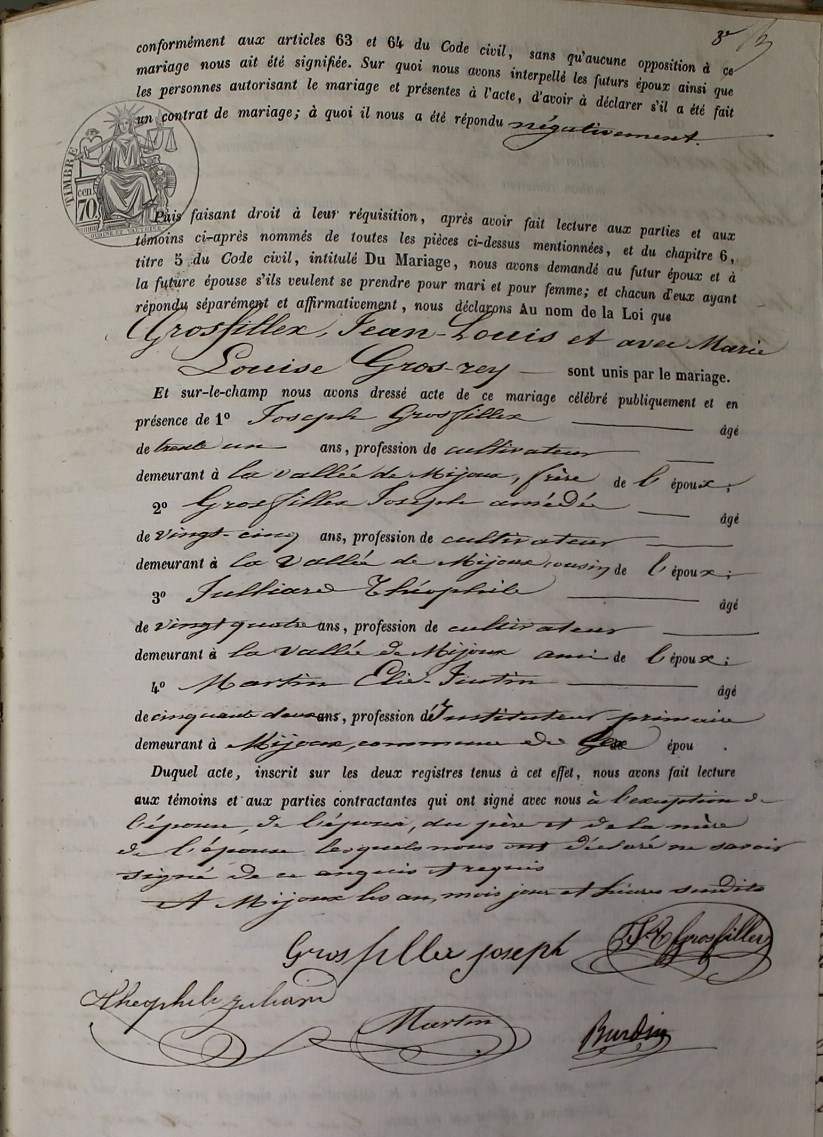 3e
conformément aux articles 63 et 64 du Code civil, sans qu'aucune opposition à ce
mariage nous ait été signifiée. Sur quoi nous avons interpellé les futurs époux ainsi que
les personnes autorisant le mariage et présentes à l'acte, d'avoir à déclarer s'il a été fait
un contrat de mariage; à quoi il nous a été répondu négativement.
TIMBRE
cen. 70
Puis faisant droit à leur réquisition, après avoir fait lecture aux parties et aux
témoins ci-après nommés de toutes les pièces ci-dessus mentionnées, et du chapitre 6,
titre 5 du Code civil, intitulé Du Mariage, nous avons demandé au futur époux et à
la future épouse s'ils veulent se prendre pour mari et pour femme; et chacun d'eux ayant
répondu séparément et affirmativement, nous déclarons Au nom de la Loi que
Grosfillex, Jean-Louis et avec Marie
Louise Gros-rey — sont unis par le mariage.
Et sur-le-champ nous avons dressé acte de ce mariage célébré publiquement et en
présence de 1o Joseph Grosfillex — âgé
de trente un ans, profession de cultivateur —
demeurant à la vallée de Mijoux, frère de l'époux;
2o Grosfillex Joseph amédée — âgé
de vingt-cinq ans, profession de cultivateur —
demeurant à la vallée de Mijoux cousin de l'époux;
3o Julliard Théophile — âgé
de vingt quatre ans, profession de cultivateur —
demeurant à la vallée de Mijoux ami de l'époux;
4o Martin Elie-Justin — âgé
de cinquante deux ans, profession d'Instituteur primaire
demeurant à Mijoux, commune de Gex épou .
Duquel acte, inscrit sur les deux registres tenus à cet effet, nous avons fait lecture
aux témoins et aux parties contractantes qui ont signé avec nous à l'exception de
l'époux, de l'épouse, du père et de la mère
de l'épouse lesquels nous ont déclaré ne savoir
signé de ce enquis et requis
A Mijoux les an, mois jour et heures susdits
Grosfillex joseph
J A Grosfillex
Théophile Juliard
Martin
Burdin